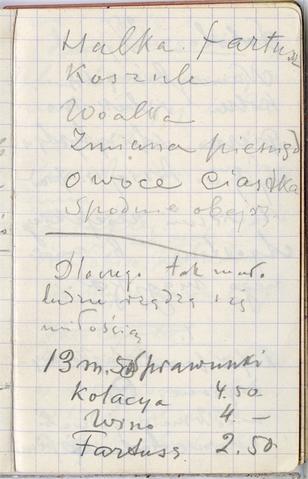 Halka. fartuch
Koszule
Woalka
Zmiana pieniędz
Owoce Ciastka
Spodnie obejrz
Dlaczego tak mało
ludzie rządzą się
miłością
13 m. Sprawunki
Kolacya 4.50
Wino 4.—
Fartuss 2.50